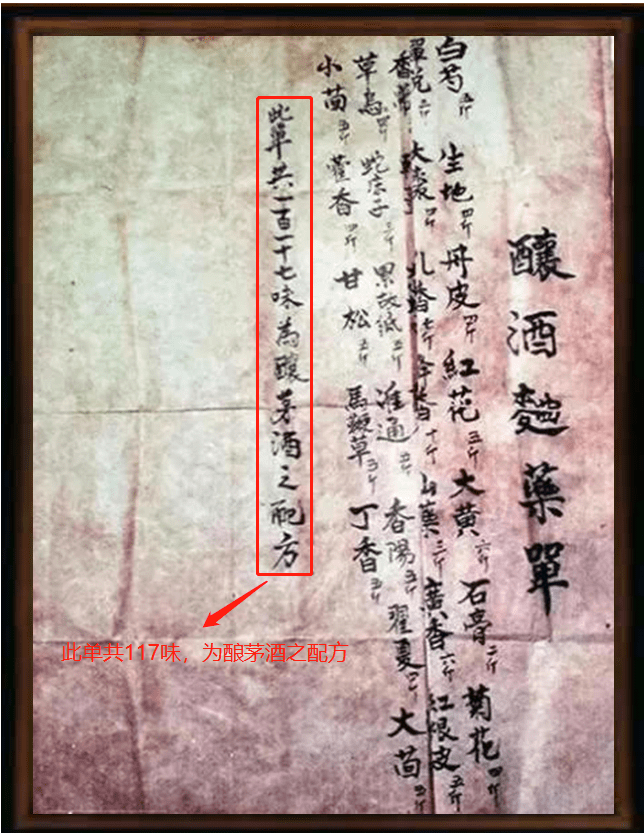 釀酒麯藥單
白芍 生地 四斤 丹皮 四斤 紅花 三斤 大黃 六斤 石膏 二斤 菊花 四斤
十斤 山藥 三斤 黃香 六斤 紅根皮 五斤
草烏 四斤 蛇床子 三斤 果故紙 五斤 准通 香陽 五斤 瞿夏 四斤 大茴 三斤
小茴 五斤 藿香 四斤 甘松 五斤 馬鞭草 三斤 丁香 五斤
此單共一百一十七味為釀茅酒之配方
此单共117味，为酿茅酒之配方